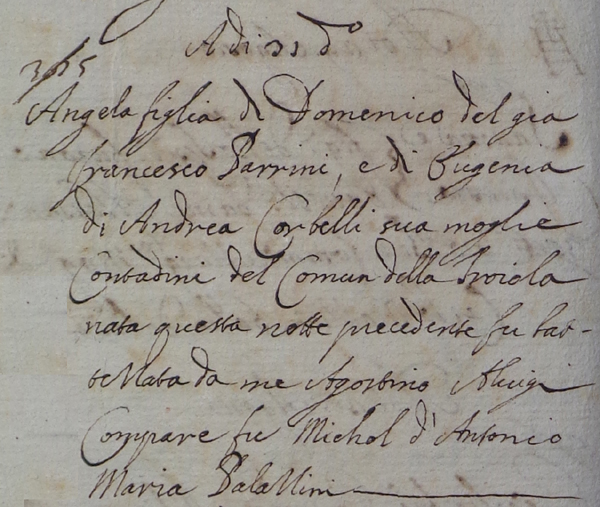 Adi 31 do
365
Angela figlia di Domenico del gia
francesco Parrini, e di Eugenia
di Andrea Corbelli sua moglie
Contadini del Comun della
nata questa notte precedente fu bat-
tezzata da me Agostino Aluigi
Compare fu Michol d'Antonio
Maria Palazzini